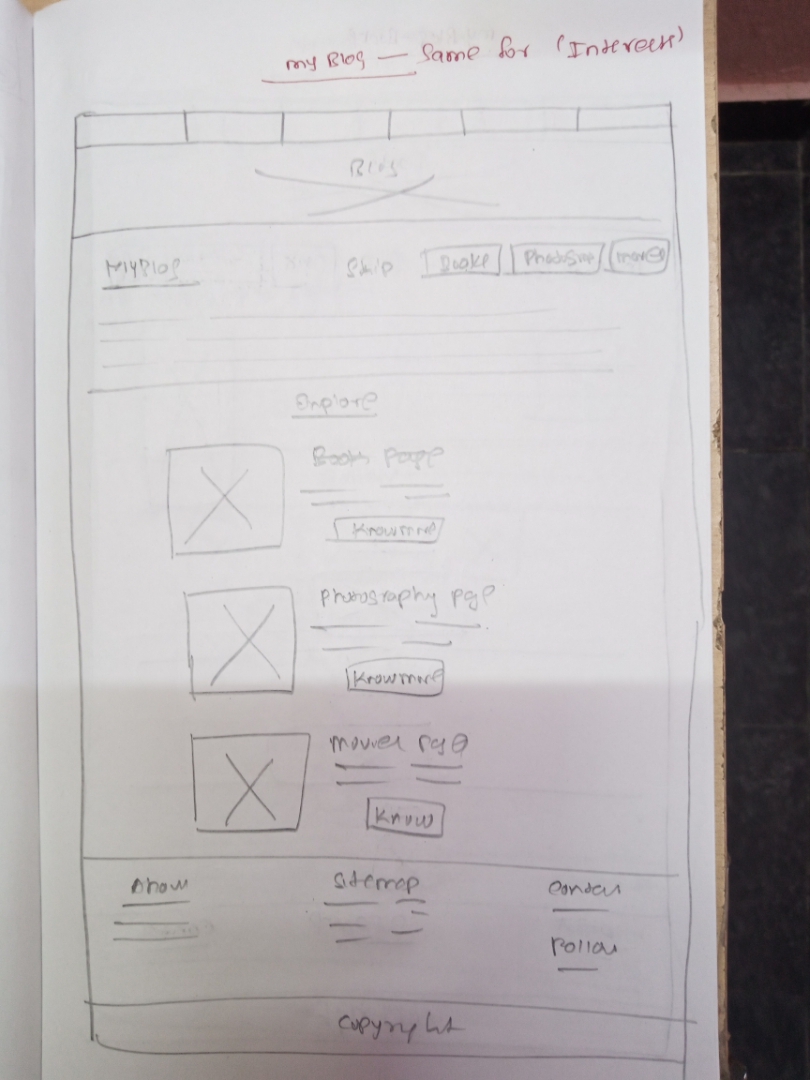 my Blog — Same for (Interest)
Blog
MyBlog Skip Books Photograp movies
Explore
Book page
Knowmore
Photography pge
Knowmore
Movies pge
Know
About
Sitemap
Contac
Follow
Copyright